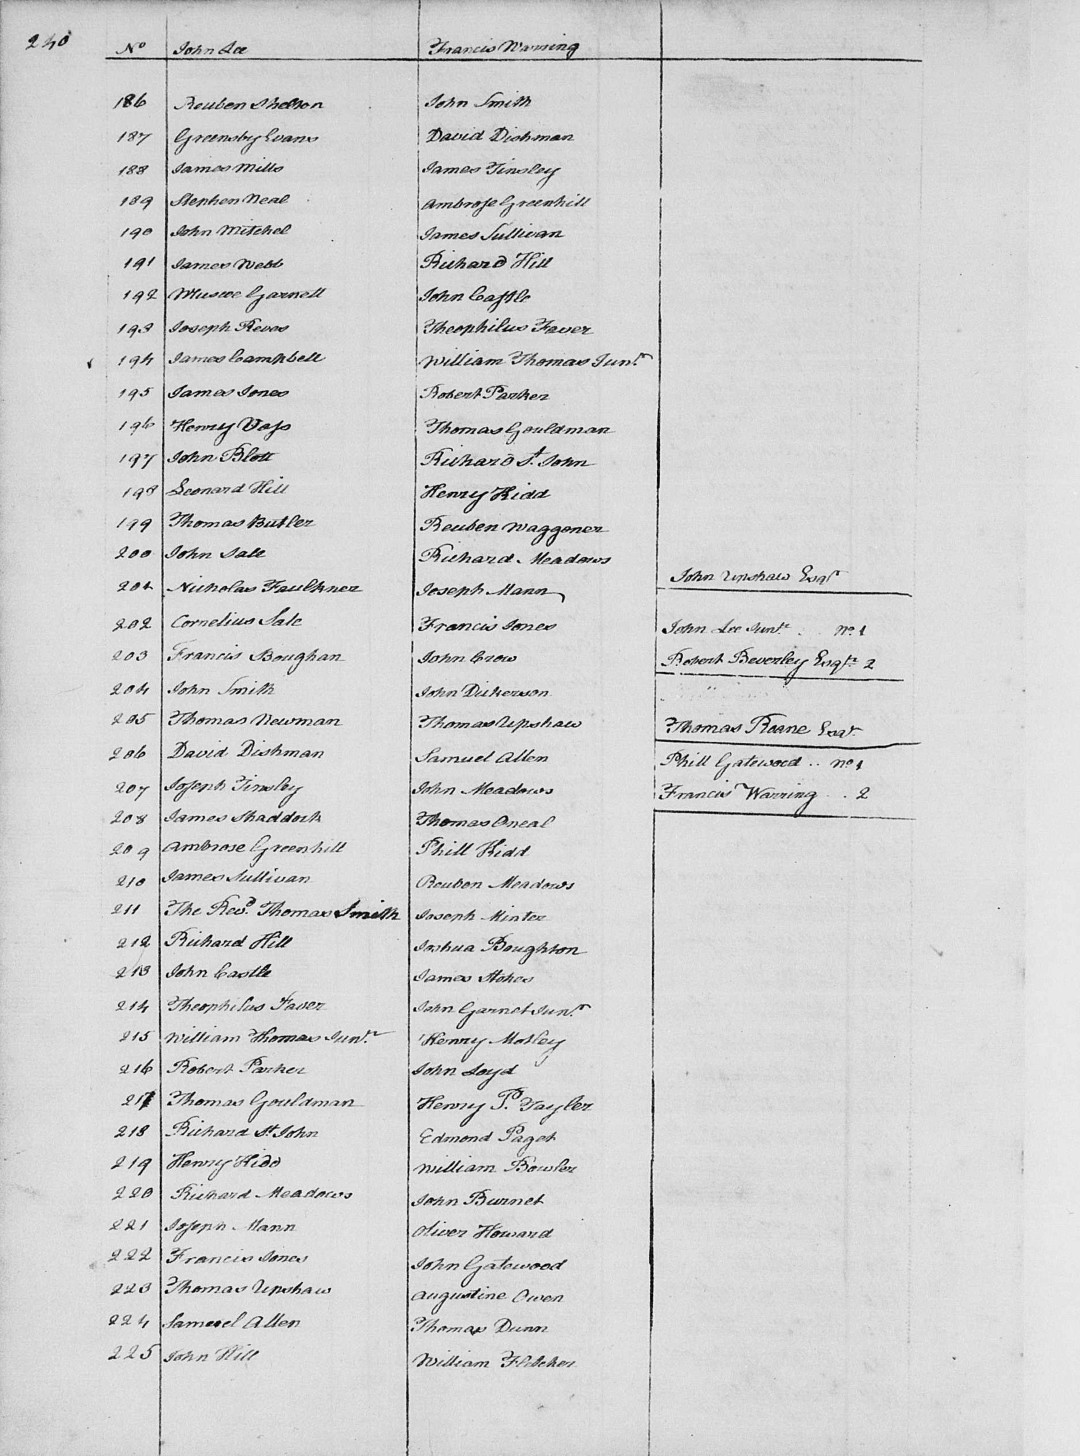 240
No John Lee Francis Warring
186 Reuben Shelton John Smith
187 Greensby Evans David Dishman
188 James Mills James Tinsley
189 Stephen Neal Ambrose Greenhill
190 John Mitchel James Sullivan
191 James Webb Richard Hill
192 Muscoe Garnett John Castle
193 Joseph Reves Theophilus Faver
194 James Campbell William Thomas Junr
195 James Jones Robert Parker
196 Henry Vass Thomas Gouldman
197 John Blott Richard St. John
198 Leonard Hill Henry Kidd
199 Thomas Butler Reuben Waggoner
200 John Sale Richard Meadows
201 Nicholas Faulkner Joseph Mann John Upshaw Esqr
202 Cornelius Sale Francis Jones John Lee Junr .. no 1
203 Francis Boughan John Crow Robert Beverley Esqr 2
204 John Smith John Dickerson
205 Thomas Newman Thomas Upshaw Thomas Roane Esqr
206 David Dishman Samuel Allen Phill Gatewood .. no 1
207 Joseph Tinsley John Meadows Francis Warring .. 2
208 James Shaddock Thomas Oneal
209 Ambrose Greenhill Phill Kidd
210 James Sullivan Reuben Meadows
211 The Revd. Thomas Smith Joseph Minter
212 Richard Hill Joshua Boughton
213 John Castle James Stokes
214 Theophilus Faver John Garnet Junr
215 William Thomas Junr Henry Motley
216 Robert Parker John Loyd
217 Thomas Gouldman Henry P. Tayler
218 Richard St. John Edmond Paget
219 Henry Kidd William Bowler
220 Richard Meadows John Burnet
221 Joseph Mann Oliver Howard
222 Francis Jones John Gatewood
223 Thomas Upshaw Augustine Owen
224 Samuel Allen Thomas Dunn
225 John Hill William Fletcher